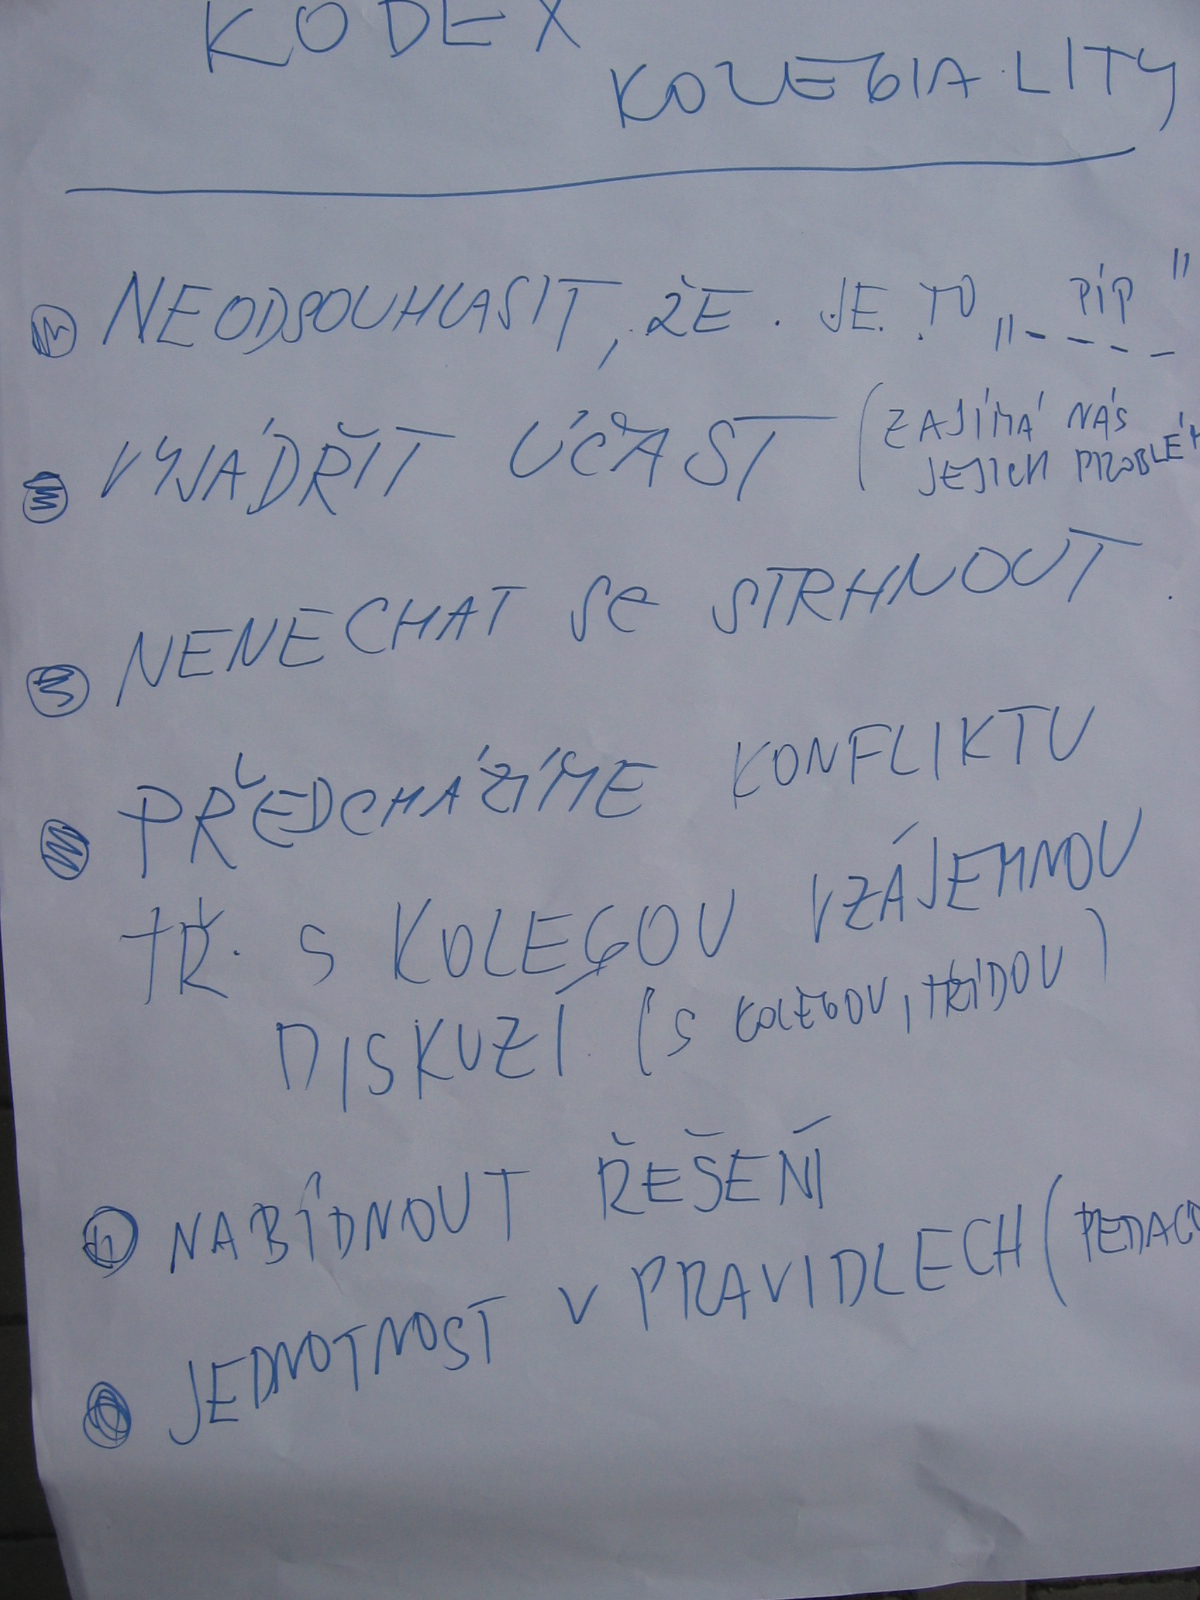 KODEX
KOLEGIALITY
NEODSOUHLASIT, ŽE JE TO „---- PÍP"
VYJÁDŘIT ÚČAST (ZAJÍMÁ NÁS
JEJICH PROBLÉM
NENECHAT SE STRHNOUT.
PŘEDCHÁZÍME KONFLIKTU
TŘ. S KOLEGOU VZÁJEMNOU
DISKUZÍ (S KOLEGOU, TŘÍDOU)
NABÍDNOUT ŘEŠENÍ
JEDNOTNOST V PRAVIDLECH (